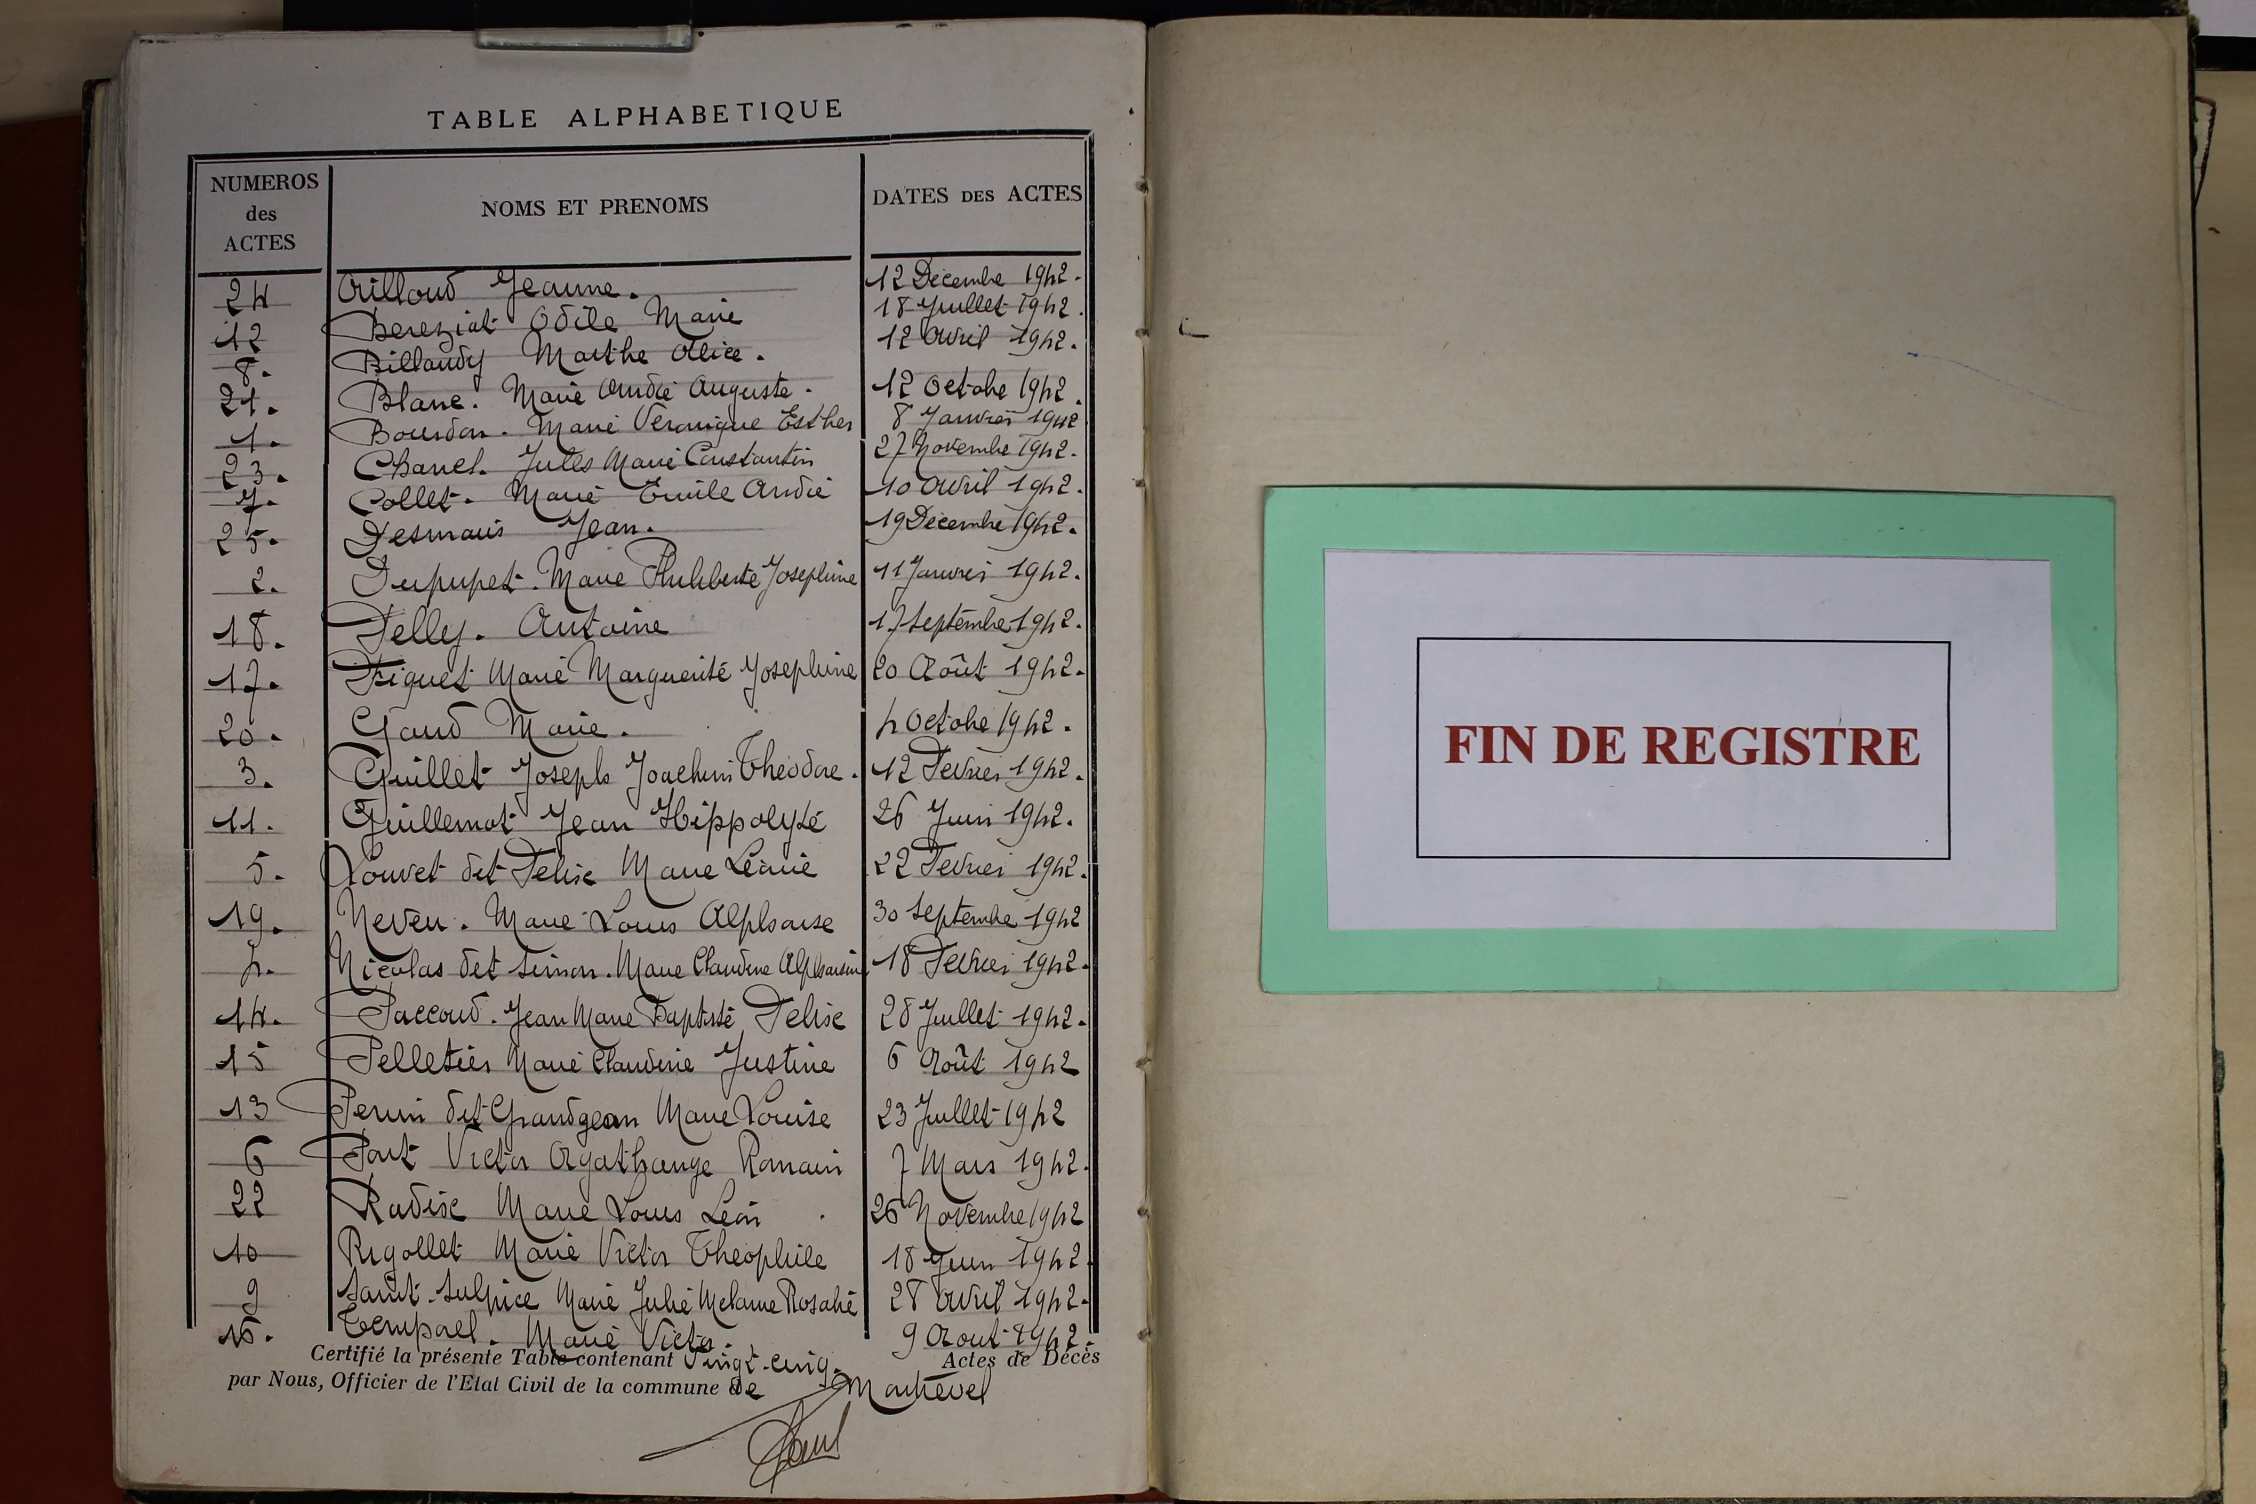 TABLE ALPHABETIQUE
NUMEROS des ACTES NOMS ET PRENOMS DATES DES ACTES
24 Ailloud Jeanne. 12 Décembre 1942.
12 Bereziat Odile Marie 18 Juillet 1942.
8. Billaudy Marthe Alice. 12 Avril 1942.
21. Blanc. Marie André Auguste. 12 Octobre 1942.
1. Bourdon. Marie Véronique Esther 8 Janvier 1942
23. Chanel. Jules Marie Constantin 27 Novembre 1942.
7. Collet. Marie Emile André 10 Avril 1942.
25. Desmaris Jean. 19 Décembre 1942.
2. Dupupet. Marie Philiberte Josephine 11 Janvier 1942.
18. Felly. Antoine 17 Septembre 1942.
17. Figuet Marie Marguerite Josephine 20 Août 1942.
20. Gaud Marie. 4 Octobre 1942.
3. Guillet Joseph Joachim Théodore. 12 Février 1942.
11. Guillemot Jean Hippolyte 26 Juin 1942.
5. Louvet dit Felise Marie Léonie 22 Février 1942.
19. Neveu. Marie Louis Alphonse 30 Septembre 1942
4. Nicolas dit Simon. Marie Claudine Alphonsine 18 Février 1942.
14. Paccoud. Jean Marie Baptiste Felise 28 Juillet 1942.
15 Pelletier Marie Claudine Justine 6 Août 1942
13 Perrin dit Grandjean Marie Louise 23 Juillet 1942
6 Part Victor Agathange Romain 7 Mars 1942.
22 Radix Marie Louis Léon 26 Novembre 1942
10 Rigollet Marie Victor Théophile 18 Juin 1942.
9 Saint-Sulpice Marie Julie Melanie Rosalie 28 Avril 1942.
16. Tempael. Marie Victor. 9 Aout 1942.
Certifié la présente Table contenant Vingt-cinq. Actes de Décès
par Nous, Officier de l'Etat Civil de la commune de
FIN DE REGISTRE